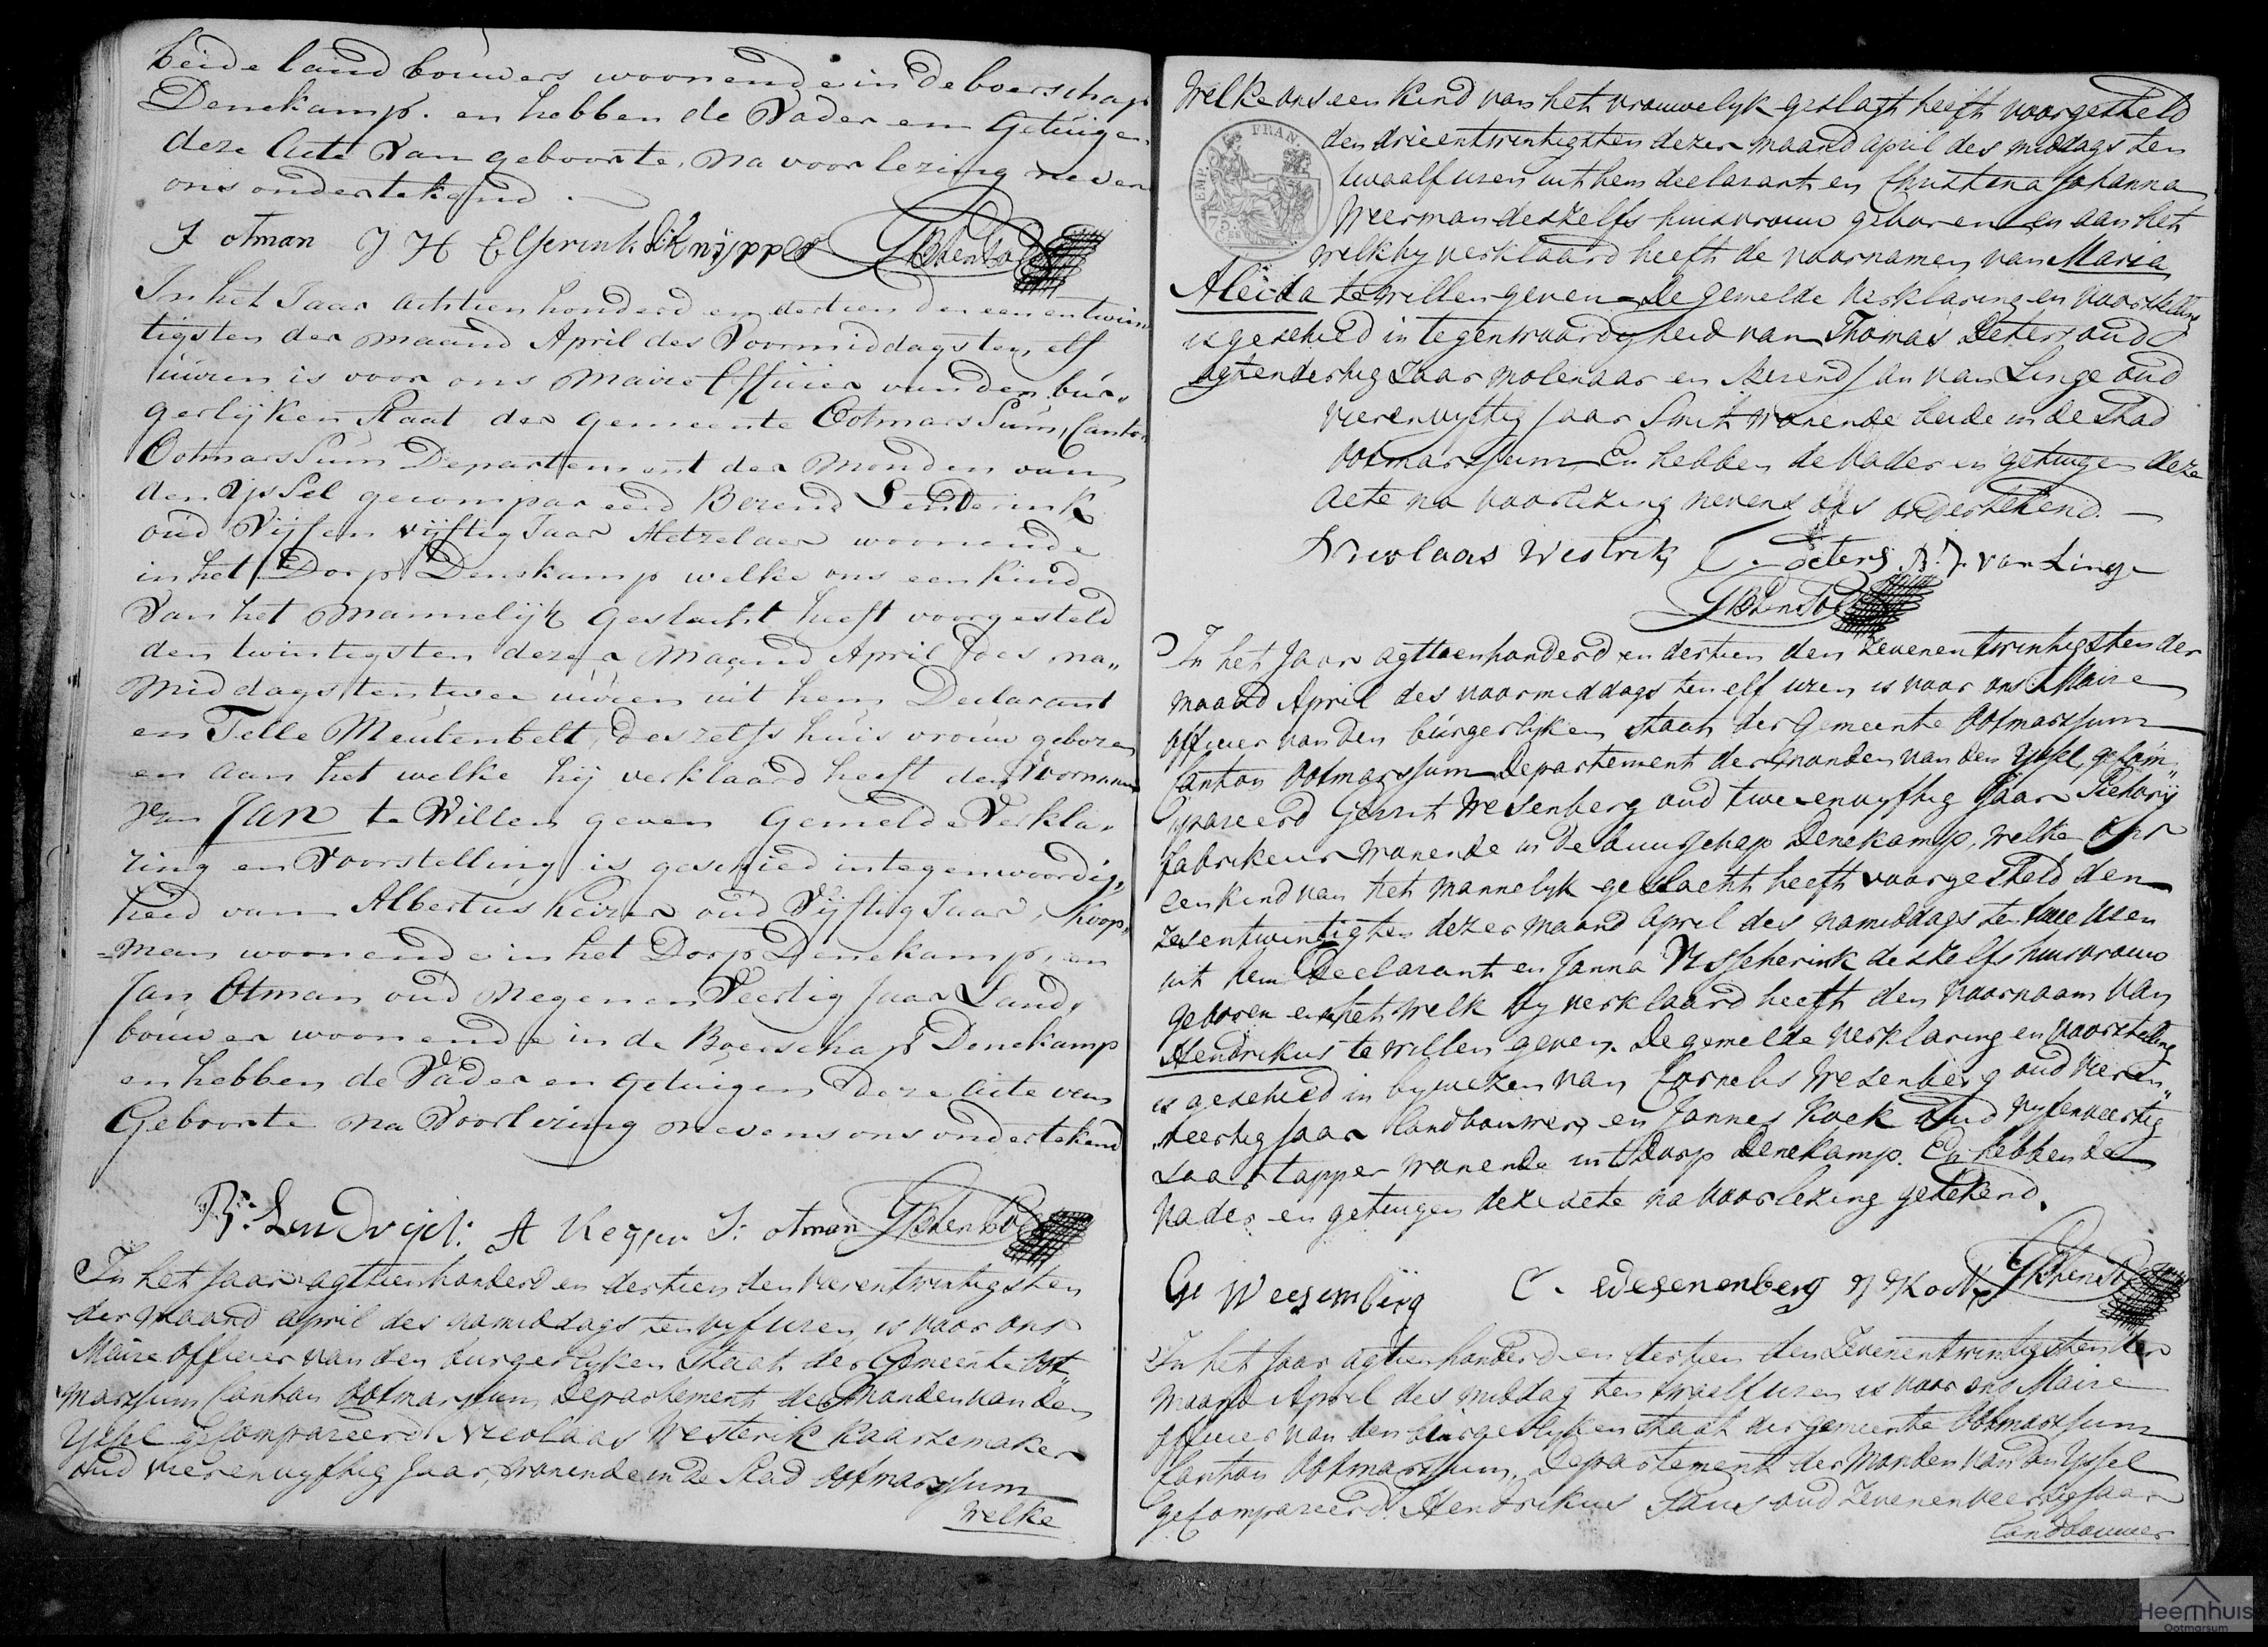 beide landbouwers woonende in de boerschap
Denekamp. en hebben de Vader en Getuigen
deze Acte van geboorte, na voorlezing neven
ons ondertekend.
J otman J H Elferink
In het Jaar achtien honderd en dertien den een en twin
tigsten der maand April des Voormiddags ten elf
uuren is voor ons Maire Officier van den bur„
gerlijken Staat der gemeente Ootmarssum, Canton
Ootmarssum Departement der Monden van
den Yssel gecompareerd Berend Lenderink
oud Vijf en vijftig Jaar Metzelaer woonende
in het Dorp Denekamp welke ons een kind
Van het Mannelijk Geslacht heeft voorgesteld
den twintigsten dezer Maand April des na„
Middags ten twee uuren uit hem Declarant
en Telle Meulenbelt, deszelfs huisvrouw geboren
en aan het welke hij verklaard heeft den Voornaam
van Jan te Willen geven Gemelde Verkla„
ring en Voorstelling is geschied in tegenwoordig„
heid van Albertus Keizer oud Vijftig Jaar, Koop„
=man woonende in het Dorp Denekamp, en
Jan Otman oud Negen en Veertig Jaar Land„
bouwer woonende in de Boerschap Denekamp
en hebben de Vader en Getuigen deze acte van
Geboorte na Voorlezing nevens ons ondertekend
A Keyser J: otman
In het Jaar agttienhonderd en dertien den vierentwintigsten
der maand april des namiddags ten vyf uren, is voor ons
Maire officier van den burgerlyken Staat der Gemeente Oot„
marssum Canton Ootmarssum Departement der Monden van den
Yssel gecompareerd Nicolaas Westerik kaarzemaker
oud vierenvyftig Jaar, wonende in de Stad Ootmarssum
welke
Welke ons een kind van het vrouwelyk geslagt heeft voorgesteld
EMP. FRAN.
75
den drieentwintigsten dezer maand april des middags ten
twaalf uren uit hem declarant en Christina Johanna
Weerman deszelfs huisvrouw geboren en aan het
welk hy verklaard heeft de voornamen van Maria
Aleida te willen geven. De gemelde verklaring en voorstelling
is geschied in tegenwoordigheid van Thomas Peters oud
agtendertig Jaar molenaar en Berend Jan van Linge oud
vierenvyftig Jaar Smit wonende beide in de Stad
Ootmarssum En hebben de vader en getuigen deze
acte na voorlezing nevens ons ondertekend. —
Nicolaas Westrik T. Peters B: J. van Linge
In het Jaar agttienhonderd en dertien den zevenentwintigsten der
maand April des voormiddags ten elf uren is voor ons Maire
officier van den burgerlyken Staat der Gemeente Ootmarssum
Canton Ootmarssum Departement der Monden van den Yssel gecom„
pareerd Gerrit Wesenberg oud tweeenvyftig Jaar
fabrikeur wonende in de buurschap Denekamp, welke ons
een kind van het mannelyk geslacht heeft voorgesteld den
zesentwintigsten dezer maand april des namiddags ten twee uren
uit hem Declarant en Janna deszelfs huisvrouw
geboren en het welk hy verklaard heeft den voornaam van
Hendrikus te willen geven. De gemelde verklaring en voorstelling
is geschied in bywezen van Cornelis Wesenberg oud vieren„
veertig Jaar landbouwer, en Jannes Kock oud vyfenveertig
Jaar tapper wonende in 't Dorp Denekamp. En hebben de
vader en getuigen deze acte na voorlezing getekend.
C. Wesenenberg J Kock
In het Jaar agttienhonderd en dertien den Zevenentwintigsten der
maand April des middag ten twaalf uren is voor ons Maire
officier van den burgerlyken staat der gemeente Ootmarssum
Canton Ootmarssum, Departement der Monden van den Yssel
gecompareerd Hendrikus oud zevenenveertig Jaar
landbouwer
Heemhuis
Ootmarsum